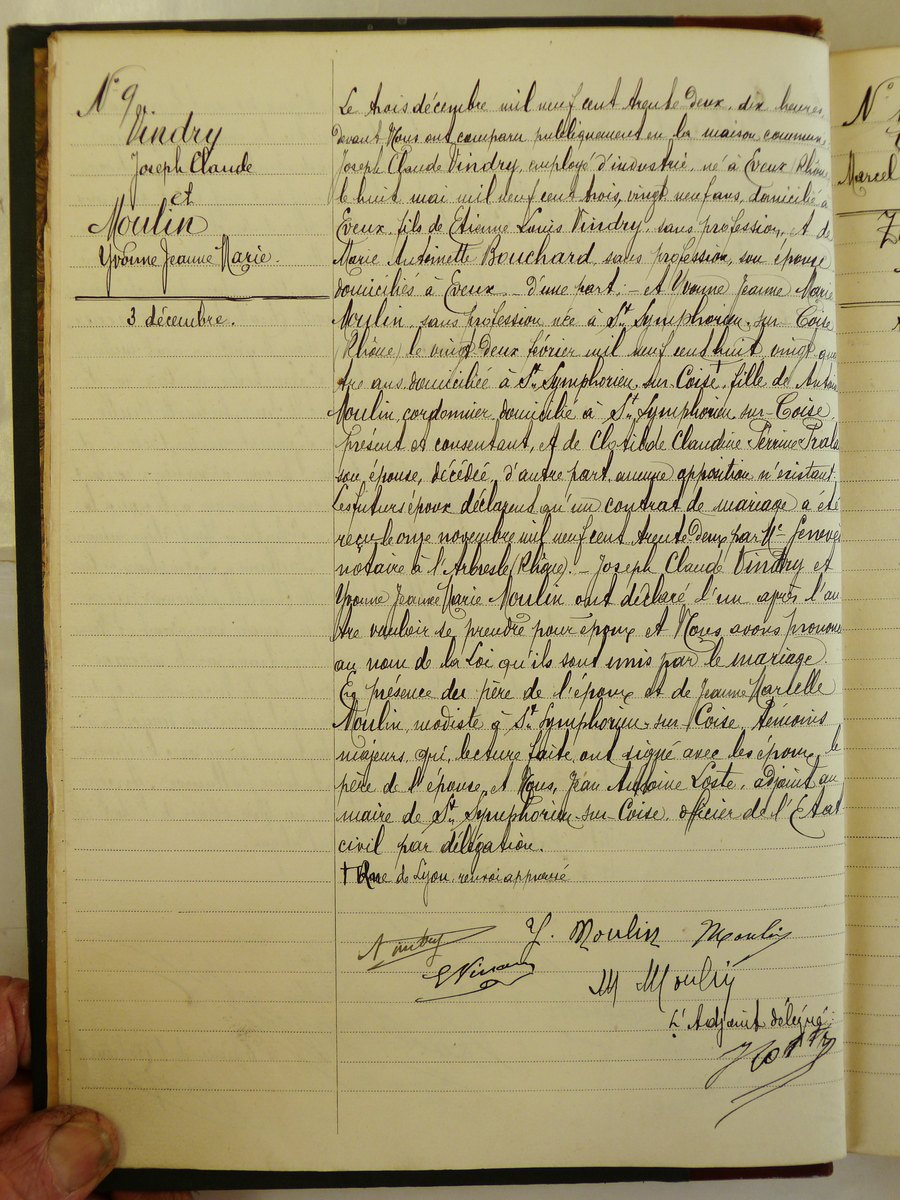 N° 9.
Vindry
Joseph Claude
et
Moulin
Yvonne Jeanne Marie.
3 décembre.
Le trois décembre mil neuf cent trente deux, dix heures
devant Nous ont comparu publiquement en la maison commune
Joseph Claude Vindry, employé d'industrie, né à Eveux (Rhône
le huit mai mil neuf cent trois, vingt neuf ans, domicilié à
Eveux, fils de Etienne Louis Vindry, sans profession, et de
Marie Antoinette Bouchard, sans profession, son épouse
domiciliés à Eveux _ d'une part: _ et Yvonne Jeanne Marie
Moulin, sans profession née à St Symphorien-sur-Coise
(Rhône) le vingt deux février mil neuf cent huit, vingt qua
tre ans domiciliée à St Symphorien-sur-Coise†, fille de Antoine
Moulin, cordonnier domicilié à St Symphorien sur-Coise
présent et consentant, et de Clotilde Claudine Perrine
son épouse, décédée, d'autre part, aucune opposition n'existant.
Les futurs époux déclarent qu'un contrat de mariage a été
reçu le onze novembre mil neuf cent trente deux par Me
notaire à l'Arbresle (Rhône). _ Joseph Claude Vindry et
Yvonne Jeanne Marie Moulin ont déclaré l'un après l'au
tre vouloir se prendre pour époux et Nous avons prononcé
au nom de la Loi qu'ils sont unis par le mariage.
En présence du père de l'époux et de Jeanne Marcelle
Moulin, modiste à St Symphorien-sur-Coise, témoins
majeurs, qui, lecture faite, ont signé avec les époux, le
père de l'épouse, et Nous, Jean Antoine Loste, adjoint au
maire de St Symphorien-sur-Coise, officier de l'Etat
civil par délégation.
† Rue de Lyon, renvoi approuvé
Vindry
Y. Moulin
Moulin
E Vindry
M Moulin
L'Adjoint délégué:
N°
Marcel